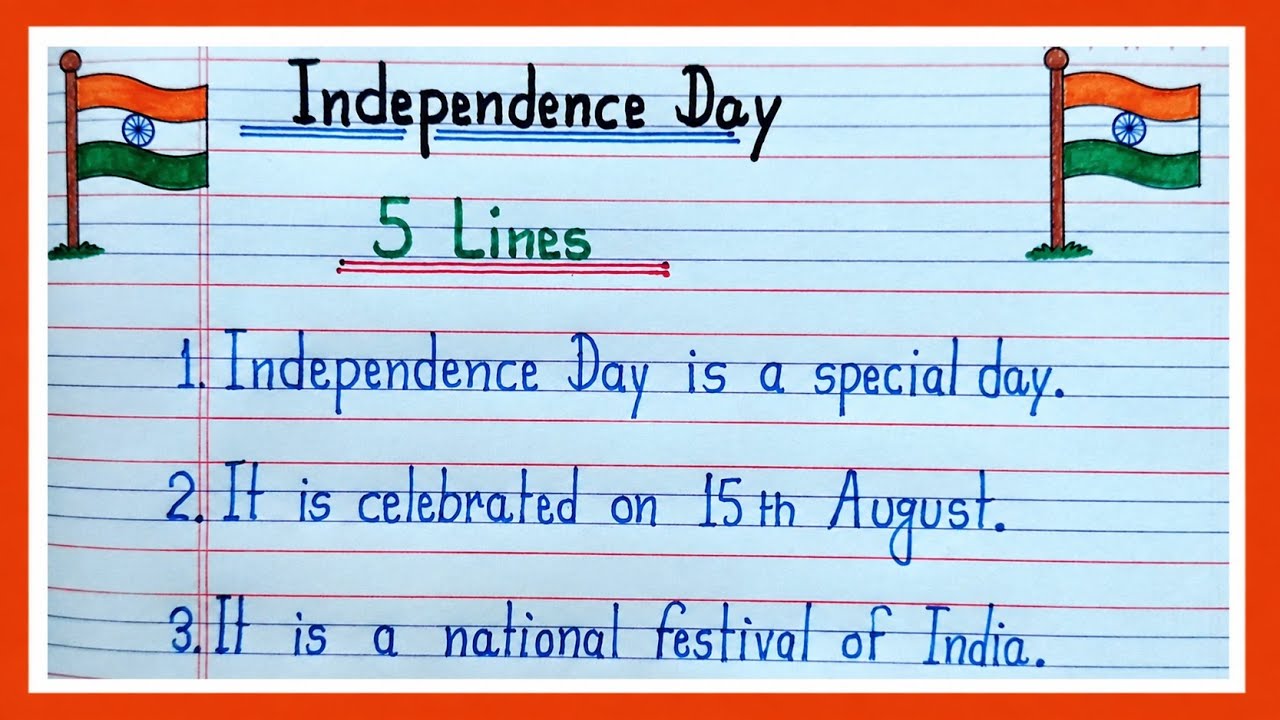 Independence Day
5 Lines
1. Independence Day is a special day.
2. It is celebrated on 15th August.
3. It is a national festival of India.